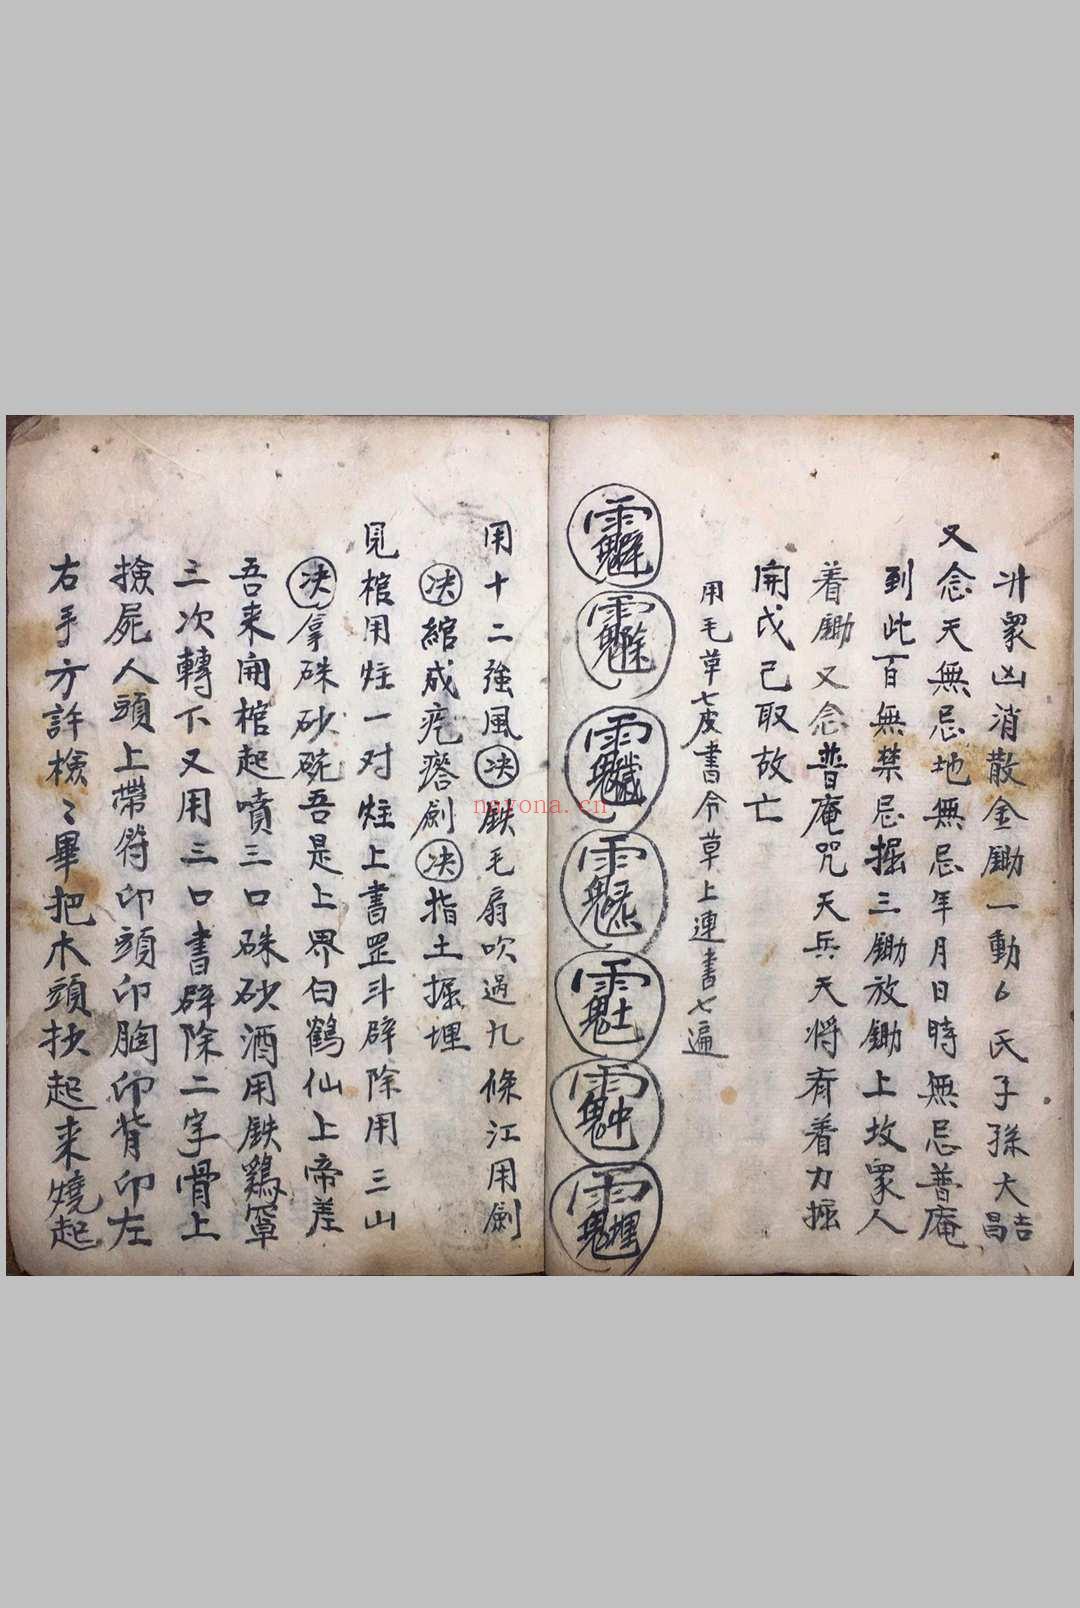 升眾凶消散金鋤一動厶氏子孫大吉昌
又念天無忌地無忌年月日時無忌普庵
到此百無禁忌掘三鋤放鋤上坟眾人
着鋤又念普庵咒天兵天将齐着力掘
開戊己取故亡
用毛草七皮書令草上連書七遍
用十二強風决鉄毛扇吹過九條江用劍
决綰成疙瘩劍决指土掘埋
見棺用炷一对炷上書罡斗辟除用三山
决拿硃砂碗吾是上界白鶴仙上帝差
吾来開棺起噴三口硃砂酒用鉄鷄罩
三次轉下又用三口書辟除二字骨上
撿屍人頭上帶符印頭印胸印背印左
右手方許檢〻畢把木頭扶起来燒起
nayona.cn